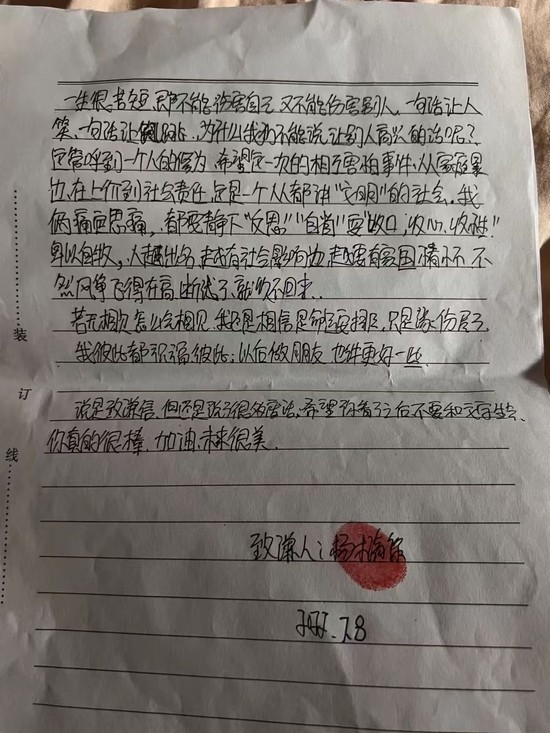 一生很苦短,即不能伤害自己,又不能伤害别人,一句话让人
笑,一句话让人跳,为什么我们不能说让别人高兴的话呢?
一个人的行为,希望这一次的相互害怕事件,从家庭暴
力,在上价到社会责任,这是一个人人都讲“文明”的社会,我
俩痛思思痛,都要静下“反思”“自省”要“收口,收心,收碰”
卑以自牧,人越出名,越有社会影响力,越要有家国情怀,不
然风筝飞得在高,断线了,就收不回来.
若无相欠怎么会相见,我还是相信是命运安排,只是缘伤尽了
我彼此都祝福彼此;以后做朋友 也许更好一些.
说是致谦信,但还是说了很多废话,希望你看了之后不要和文字生气,
你真的很棒,加油,未来很美.
致谦人:
7.8
装
订
线